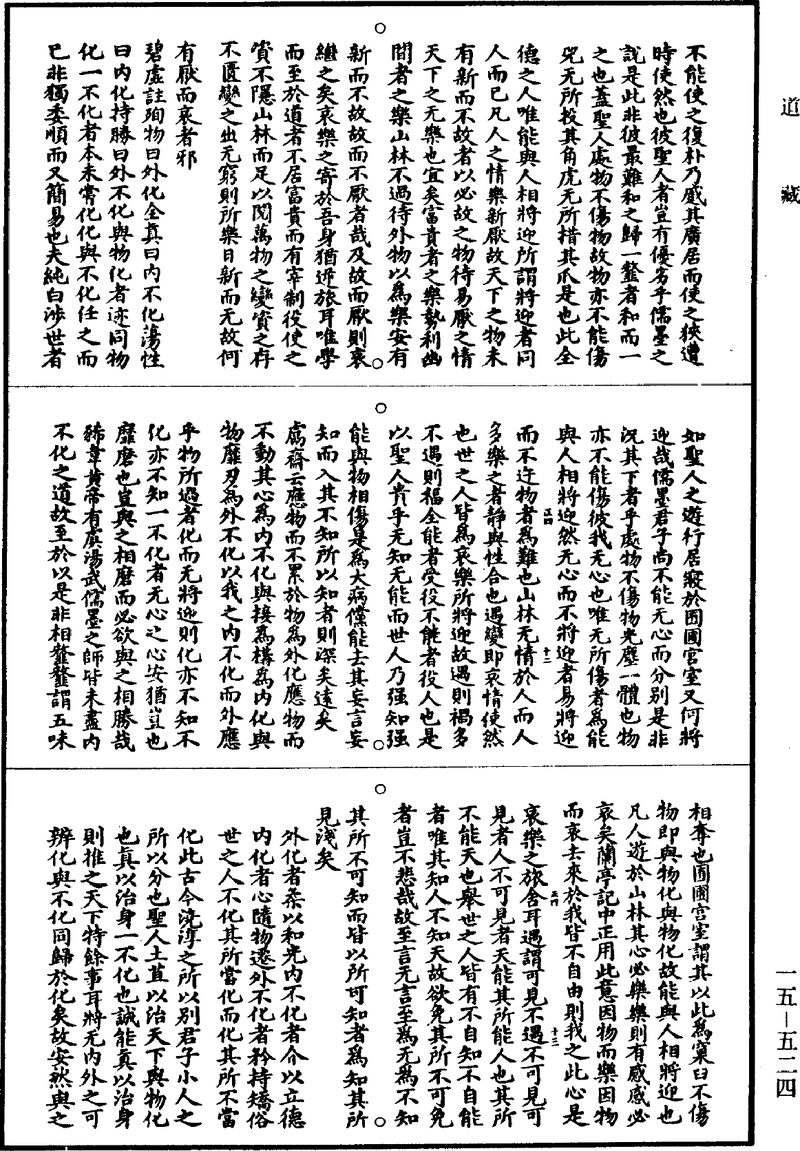 道藏
不能使之復朴乃感其廣居而使之狹遭
時使然也彼聖人者豈有優劣乎儒墨之
說是此非彼最難和之歸一𩐋者和而一
之也蓋聖人處物不傷物故物亦不能傷
兕无所投其角虎无所措其爪是也此全
德之人唯能與人相將迎所謂將迎者同
人而已凡人之情樂新厭故天下之物未
有新而不故者以必故之物待易厭之情
天下之无樂也宜矣富貴者之樂勢利幽
閒者之樂山林不過待外物以為樂安有
新而不故故而不厭者哉及故而厭則哀
繼之矣哀樂之寄於吾身猶逆旅耳唯學
而至於道者不居富貴而有宰制役使之
賞不隱山林而足以閱萬物之變實之存
不匱變之出无窮則所樂日新而无故何
有厭而哀者邪
碧虛註殉物曰外化全真曰內不化蕩性
曰內化持勝曰外不化與物化者迹同物
化一不化者本未常化化與不化任之而
已非獨委順而又簡易也夫純白涉世者
如聖人之遊行居寢於囿圃宮室又何將
迎哉儒墨君子尚不能无心而分別是非
況其下者乎處物不傷物光塵一體也物
亦不能傷彼我无心也唯无所傷者為能
與人相將迎然无心而不將迎者易將迎
而不迕物者為難也山林无情於人而人
多樂之者靜與性合也遇變即哀情使然
也世之人皆為哀樂所將迎故遇則禍多
不遇則福全能者受役不能者役人也是
以聖人貴乎无知无能而世人乃强知强
能與物相傷是為大病儻能去其妄言妄
知而入其不知所以知者則深矣遠矣
鬳齋云應物而不累於物為外化應物而
不動其心為內不化與接為構為內化與
物靡刃為外不化以我之內不化而外應
乎物所過者化而无將迎則化亦不知不
化亦不知一不化者无心之心安猶豈也
靡磨也豈與之相磨而必欲與之相勝哉
豨韋黃帝有虞湯武儒墨之師皆未盡內
不化之道故至於以是非相𩐋𩐋謂五味
相奪也囿圃宮室謂其以此為窠臼不傷
物即與物化與物化故能與人相將迎也
凡人遊於山林其心必樂樂則有感感必
哀矣蘭亭記中正用此意因物而樂因物
而哀去來於我皆不自由則我之此心是
哀樂之旅舍耳遇謂可見不遇不可見可
見者人不可見者天能其所能人也其所
不能天也舉世之人皆有不自知不自能
者唯其知人不知天故欲免其所不可免
者豈不悲哉故至言无言至為无為不知
其所不可知而皆以所可知者為知其所
見淺矣
外化者柔以和光內不化者介以立德
內化者心隨物遷外不化者矜持矯俗
世之人不化其所當化而化其所不當
化此古今澆淳之所以別君子小人之
所以分也聖人土苴以治天下與物化
也真以治身一不化也誠能真以治身
則推之天下特餘事耳將无內外之可
辨化與不化同歸於化矣故安然與之
一五—五二四